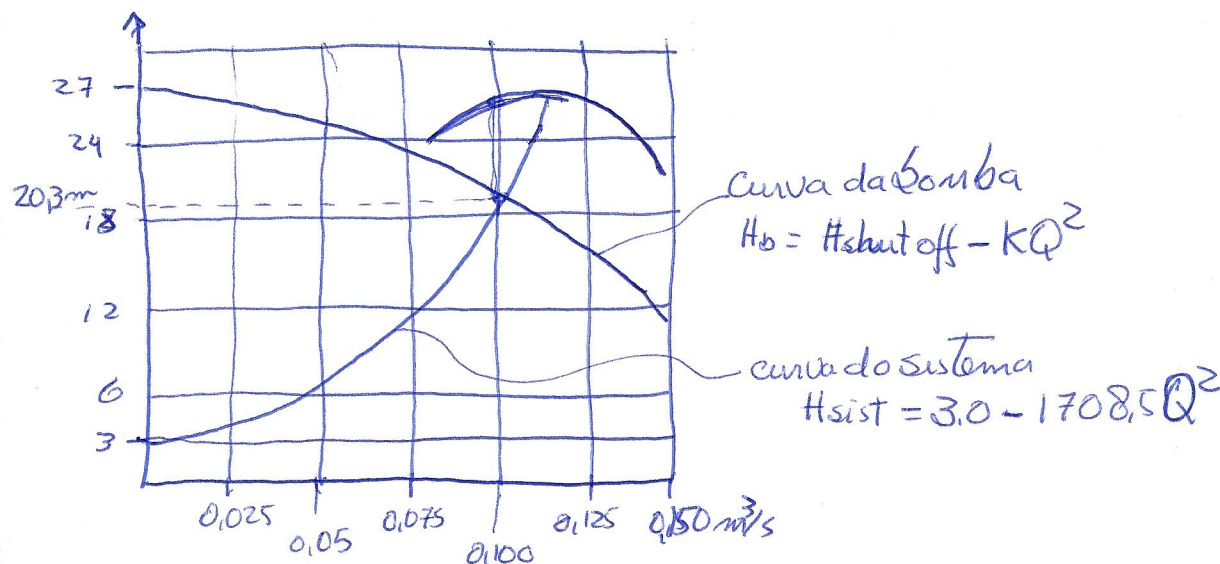 27
24
20,3m
18
12
6
3
0,025
0,05
0,075
0,100
0,125
0,150 m³/s
curva da bomba
Hb = Hshut off - KQ²
curva do sistema
Hsist = 3.0 - 1708,5Q²